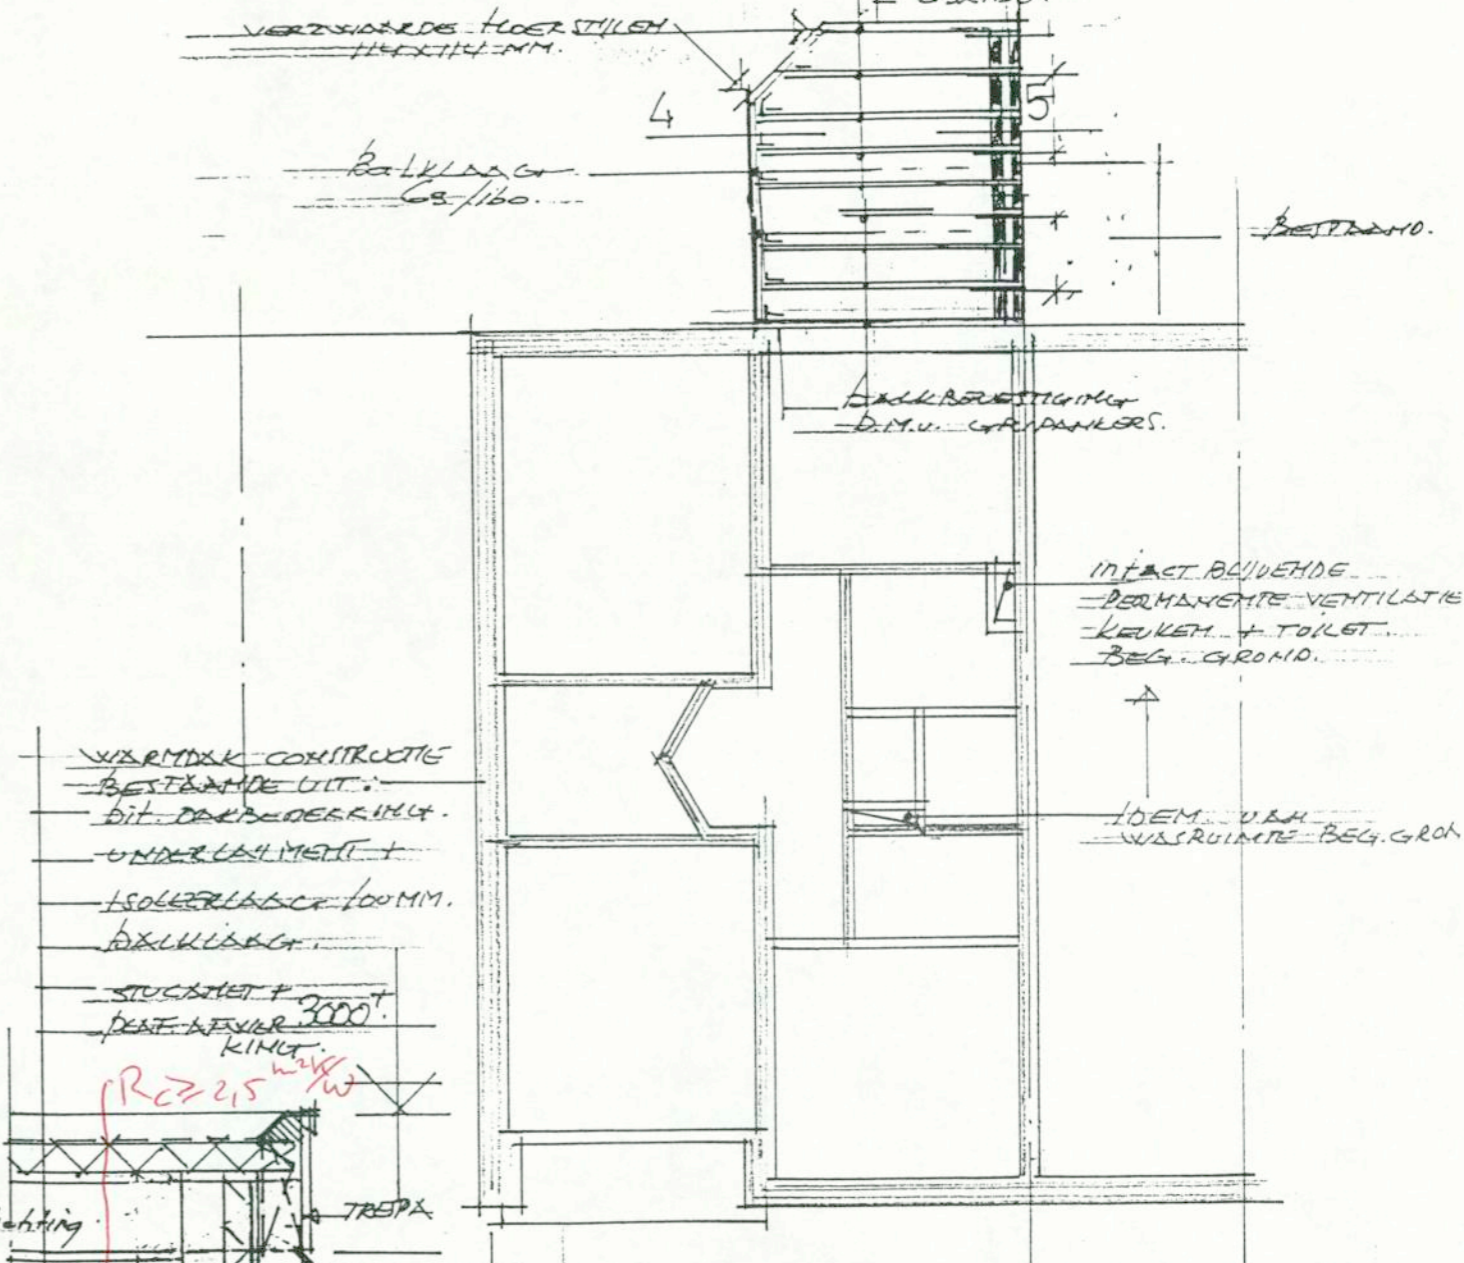 VERZWAARDE HOEKSTIJLEN
114x114 MM.
4
5
BALKLAAG
69/160.
BESTAAND.
BALKBEVESTIGING
D.M.V. GRIPANKERS.
INTACT BLIJVENDE
PERMANENTE VENTILATIE
KEUKEN + TOILET.
BEG. GROND.
WARMDAK CONSTRUCTIE
BESTAANDE UIT:
BIT. DAKBEDEKKING.
UNDERLAYMENT +
ISOLEERLAAG 100 MM.
BALKLAAG.
STUCANET +
PLAF. AFWER
KING.
3000+
IDEM VAN
WASRUIMTE BEG. GRON
Rc ≥ 2,5 m²K/W
TRESPA
chting